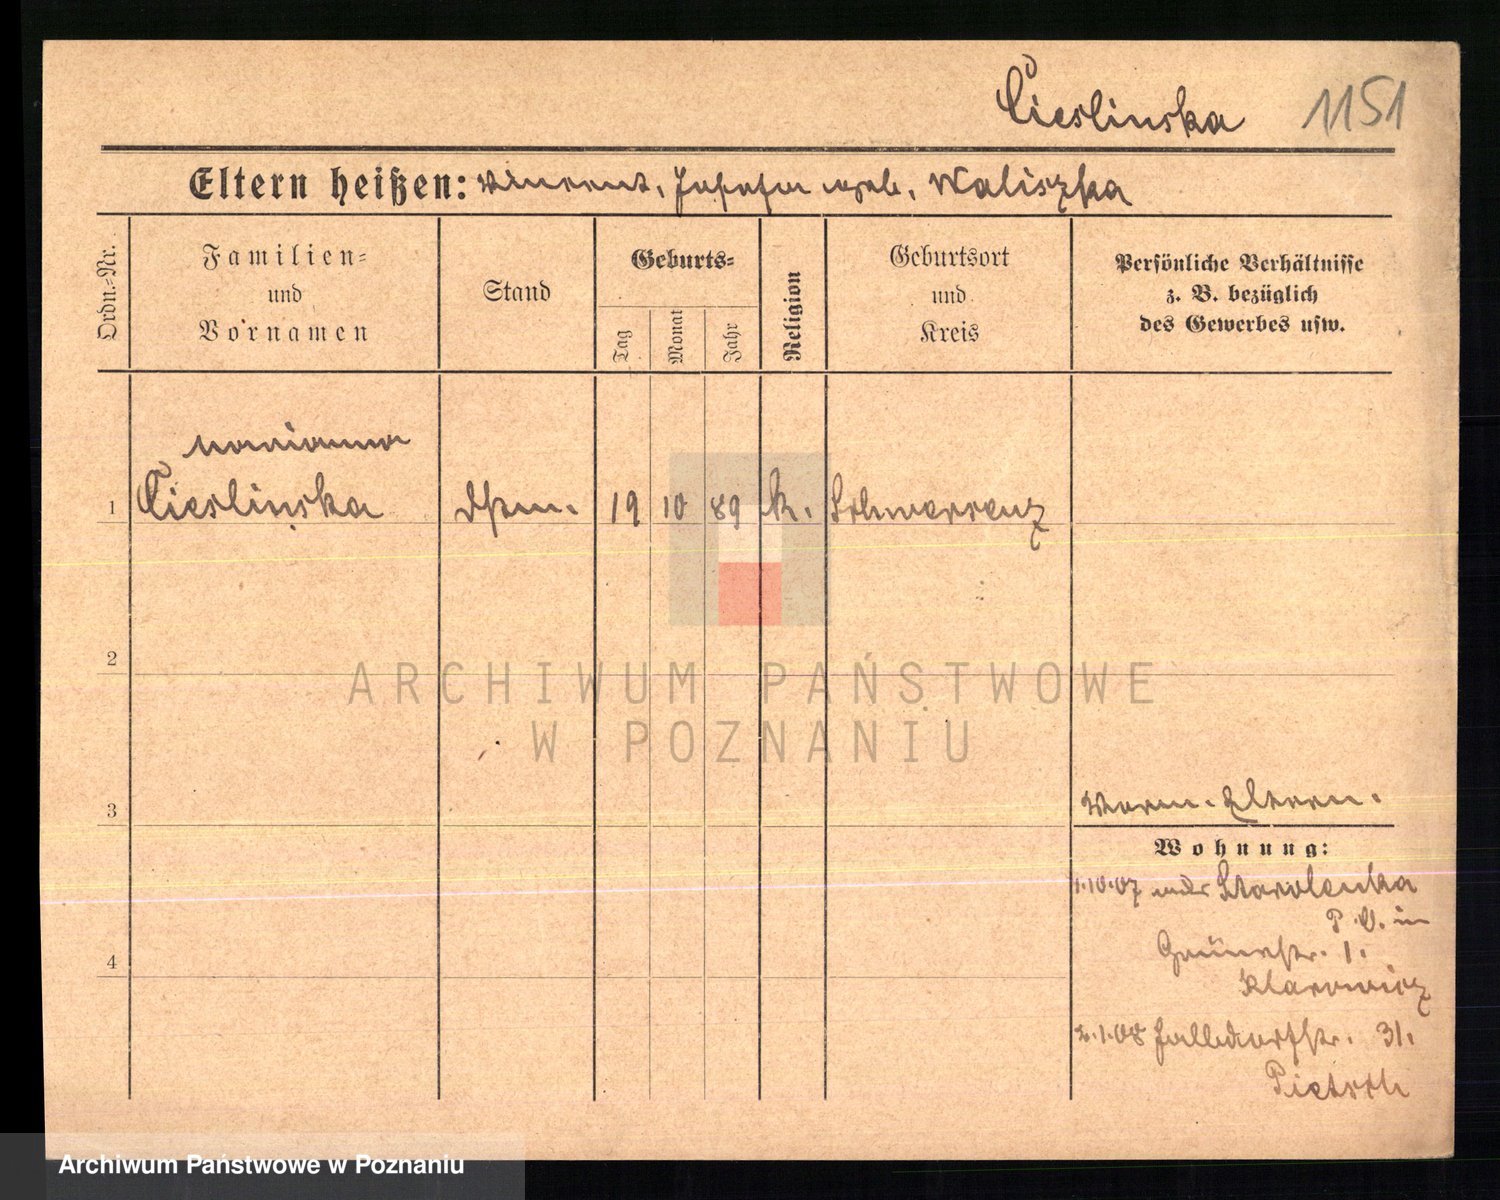 Cieslinska 1151
Eltern heißen: Vincent, Josefa geb. Waliszka
Ordn.-Nr.
Familien-
und
Vornamen
Stand
Geburts-
Tag
Monat
Jahr
Religion
Geburtsort
und
Kreis
Persönliche Verhältnisse
z. B. bezüglich
des Gewerbes usw.
Marianna
1 Cieslinska 19 10 89 k. Schwersenz
2
ARCHIWUM PAŃSTWOWE
W POZNANIU
3
Eltern.
Wohnung:
1.10.07 Starolenka
P. O. in
Grünestr. 1.
4
2.1.08 Halbdorfstr. 31.
Archiwum Państwowe w Poznaniu